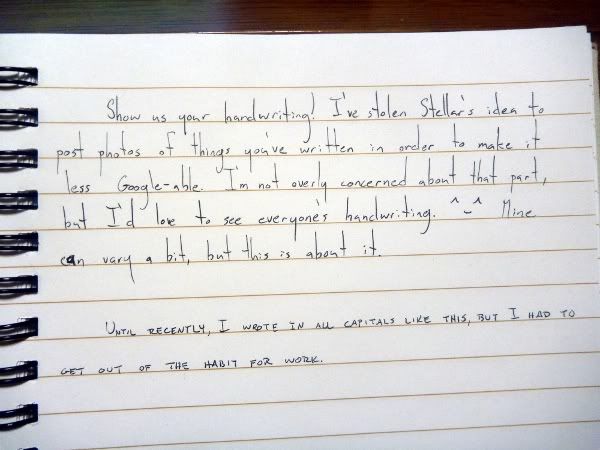 Show us your handwriting! I've stolen Stellar's idea to
post photos of things you've written in order to make it
less Google-able. I'm not overly concerned about that part,
but I'd love to see everyone's handwriting. ^_^ Mine
can vary a bit, but this is about it.
UNTIL RECENTLY, I WROTE IN ALL CAPITALS LIKE THIS, BUT I HAD TO
GET OUT OF THE HABIT FOR WORK.